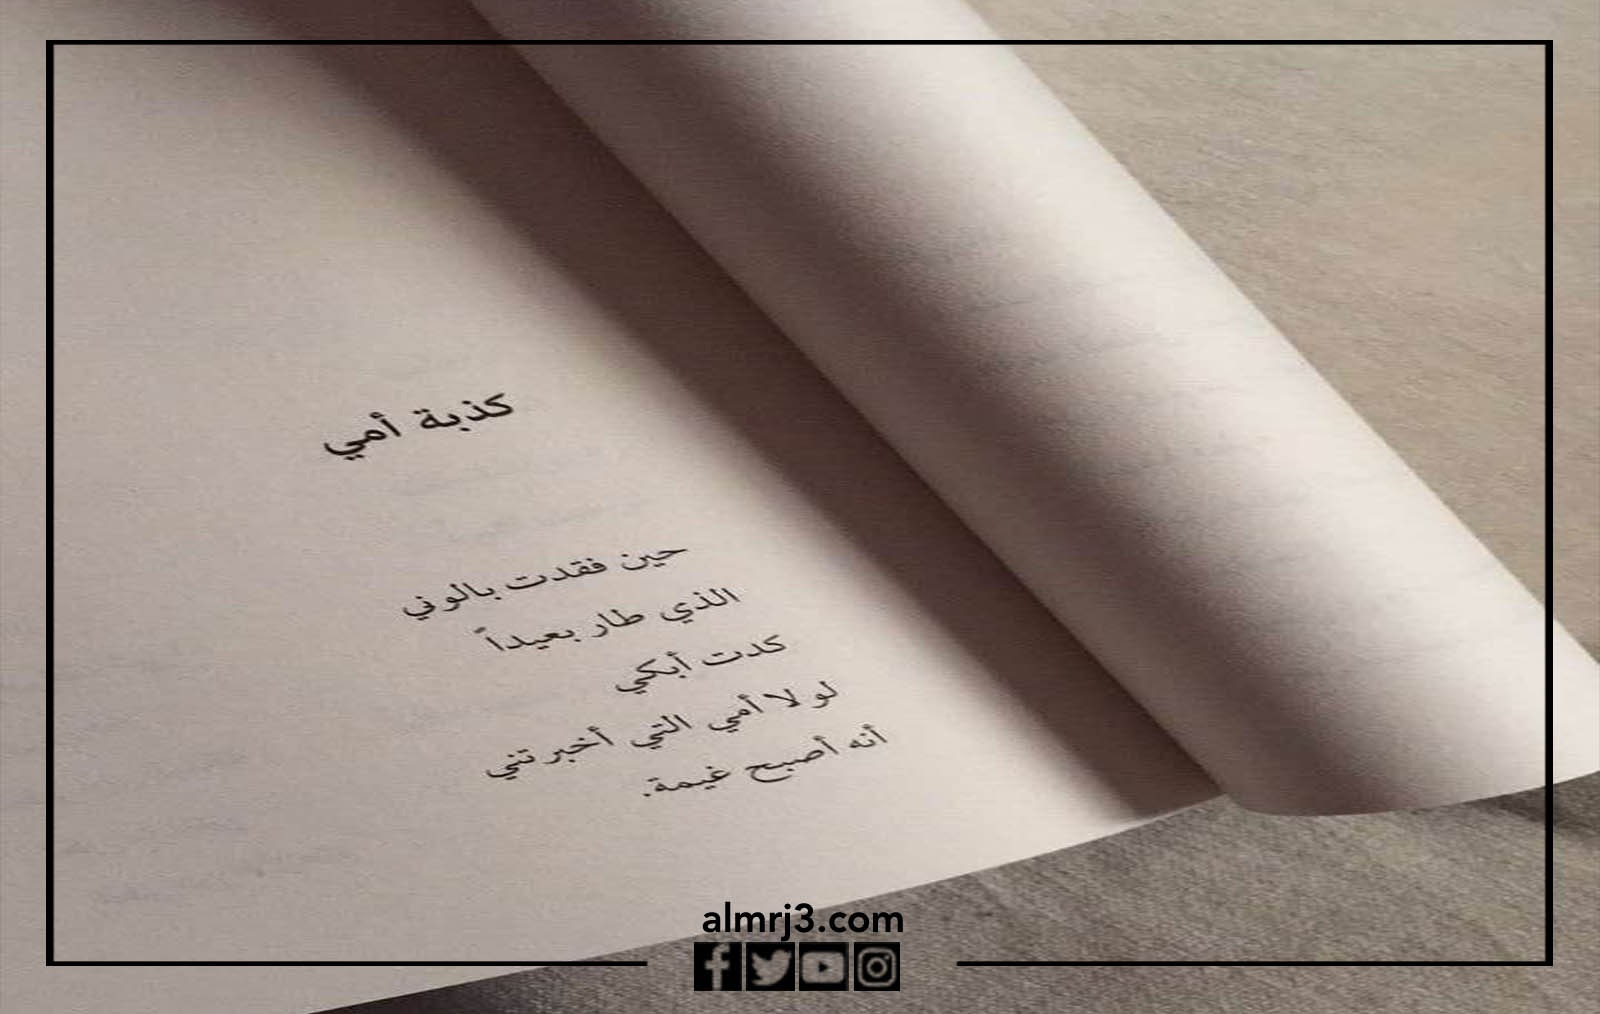 كذبة أمي
حين فقدت بالوني
الذي طار بعيداً
كدت أبكي
لولا أمي التي أخبرتني
أنه أصبح غيمة.
almrj3.com